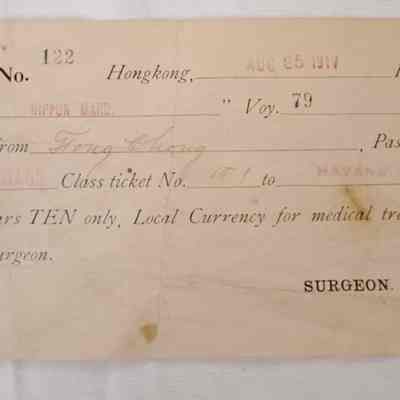 No. 122 Hongkong, AUG 25 1917
NIPPON MARU. " Voy. 79
from Fong Chong , Pas
Class ticket No. 151 to HAVANA
rs TEN only, Local Currency for medical tre
urgeon.
SURGEON.